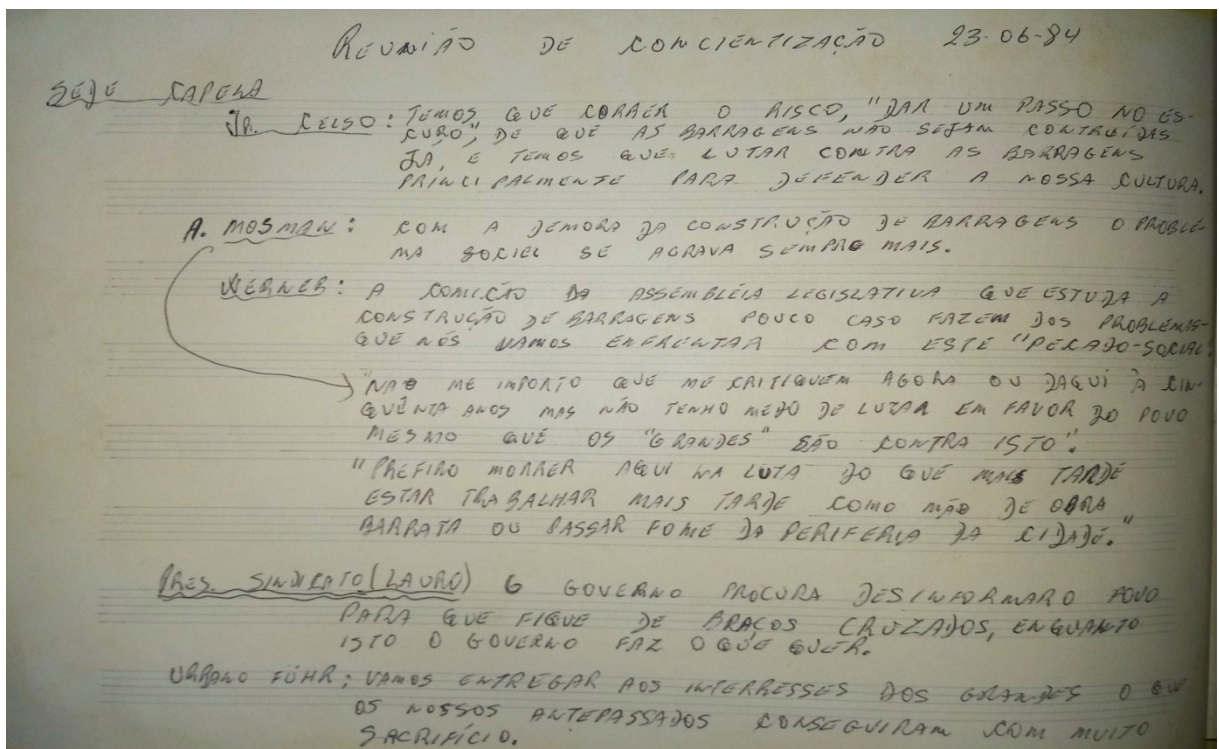 REUNIÃO DE CONCIENTIZAÇÃO 23-06-84
SEDE CAPELA
IR. CELSO: TEMOS QUE CORRER O RISCO, "DAR UM PASSO NO ES-
CURO", DE QUE AS BARRAGENS NÃO SEJAM CONTRUÍDAS
JÁ, E TEMOS QUE LUTAR CONTRA AS BARRAGENS
PRINCIPALMENTE PARA DEFENDER A NOSSA CULTURA.
A. MOSMAN: COM A DEMORA DA CONSTRUÇÃO DE BARRAGENS O PROBLE-
MA SOCIEL SE AGRAVA SEMPRE MAIS.
WERNER: A COMICÃO DA ASSEMBLÉIA LEGISLATIVA QUE ESTUDA A
CONSTRUÇÃO DE BARRAGENS POUCO CASO FAZEM DOS PROBLEMAS
QUE NÓS VAMOS ENFRENTAR COM ESTE "PECADO-SOCIAL".
"NÃO ME IMPORTO QUE ME CRITIQUEM AGORA OU DAQUI À CIN-
QUENTA ANOS MAS NÃO TENHO MEDO DE LUTAR EM FAVOR DO POVO
MESMO QUE OS "GRANDES" SÃO CONTRA ISTO".
"PREFIRO MORRER AQUI NA LUTA DO QUE MAIS TARDE
ESTAR TRABALHAR MAIS TARDE COMO MÃO DE OBRA
BARRATA OU PASSAR FOME DA PERIFERIA DA CIDADE."
PRES. SINDICATO (LAURO) O GOVERNO PROCURA DESINFORMAR O POVO
PARA QUE FIQUE DE BRAÇOS CRUZADOS, ENQUANTO
ISTO O GOVERNO FAZ O QUE QUER.
URBANO FÜHR: VAMOS ENTREGAR AOS INTERRESSES DOS GRANDES O QUE
OS NOSSOS ANTEPASSADOS CONSEGUIRAM COM MUITO
SACRIFÍCIO.